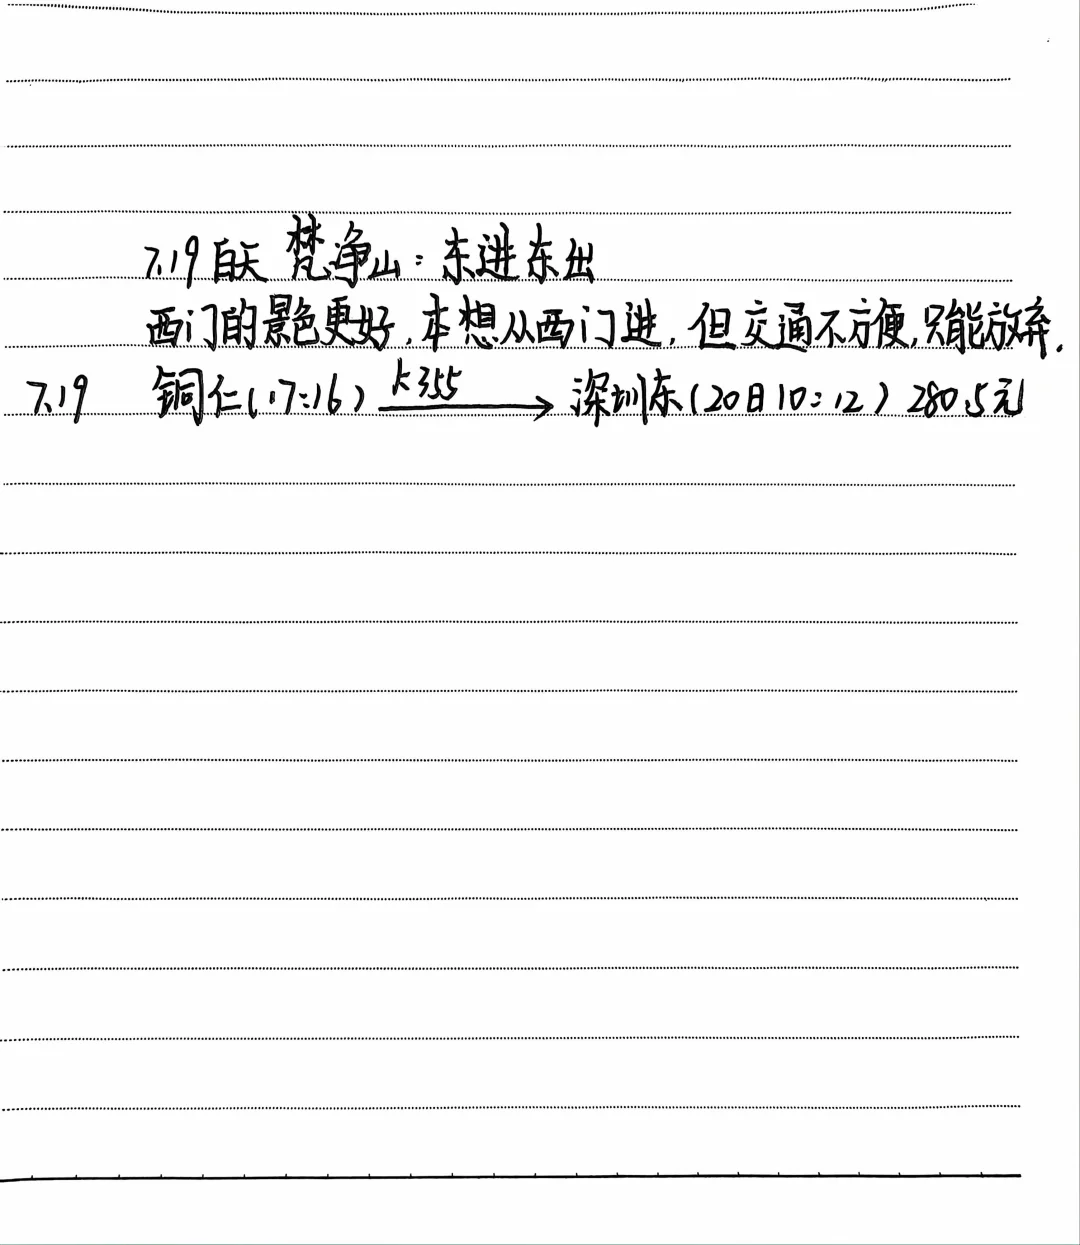 7.19白天 梵净山：东进东出
西门的景色更好，本想从西门进，但交通不方便，只能放弃.
7.19 铜仁(17:16) K355→ 深圳东(20日10:12) 280.5元